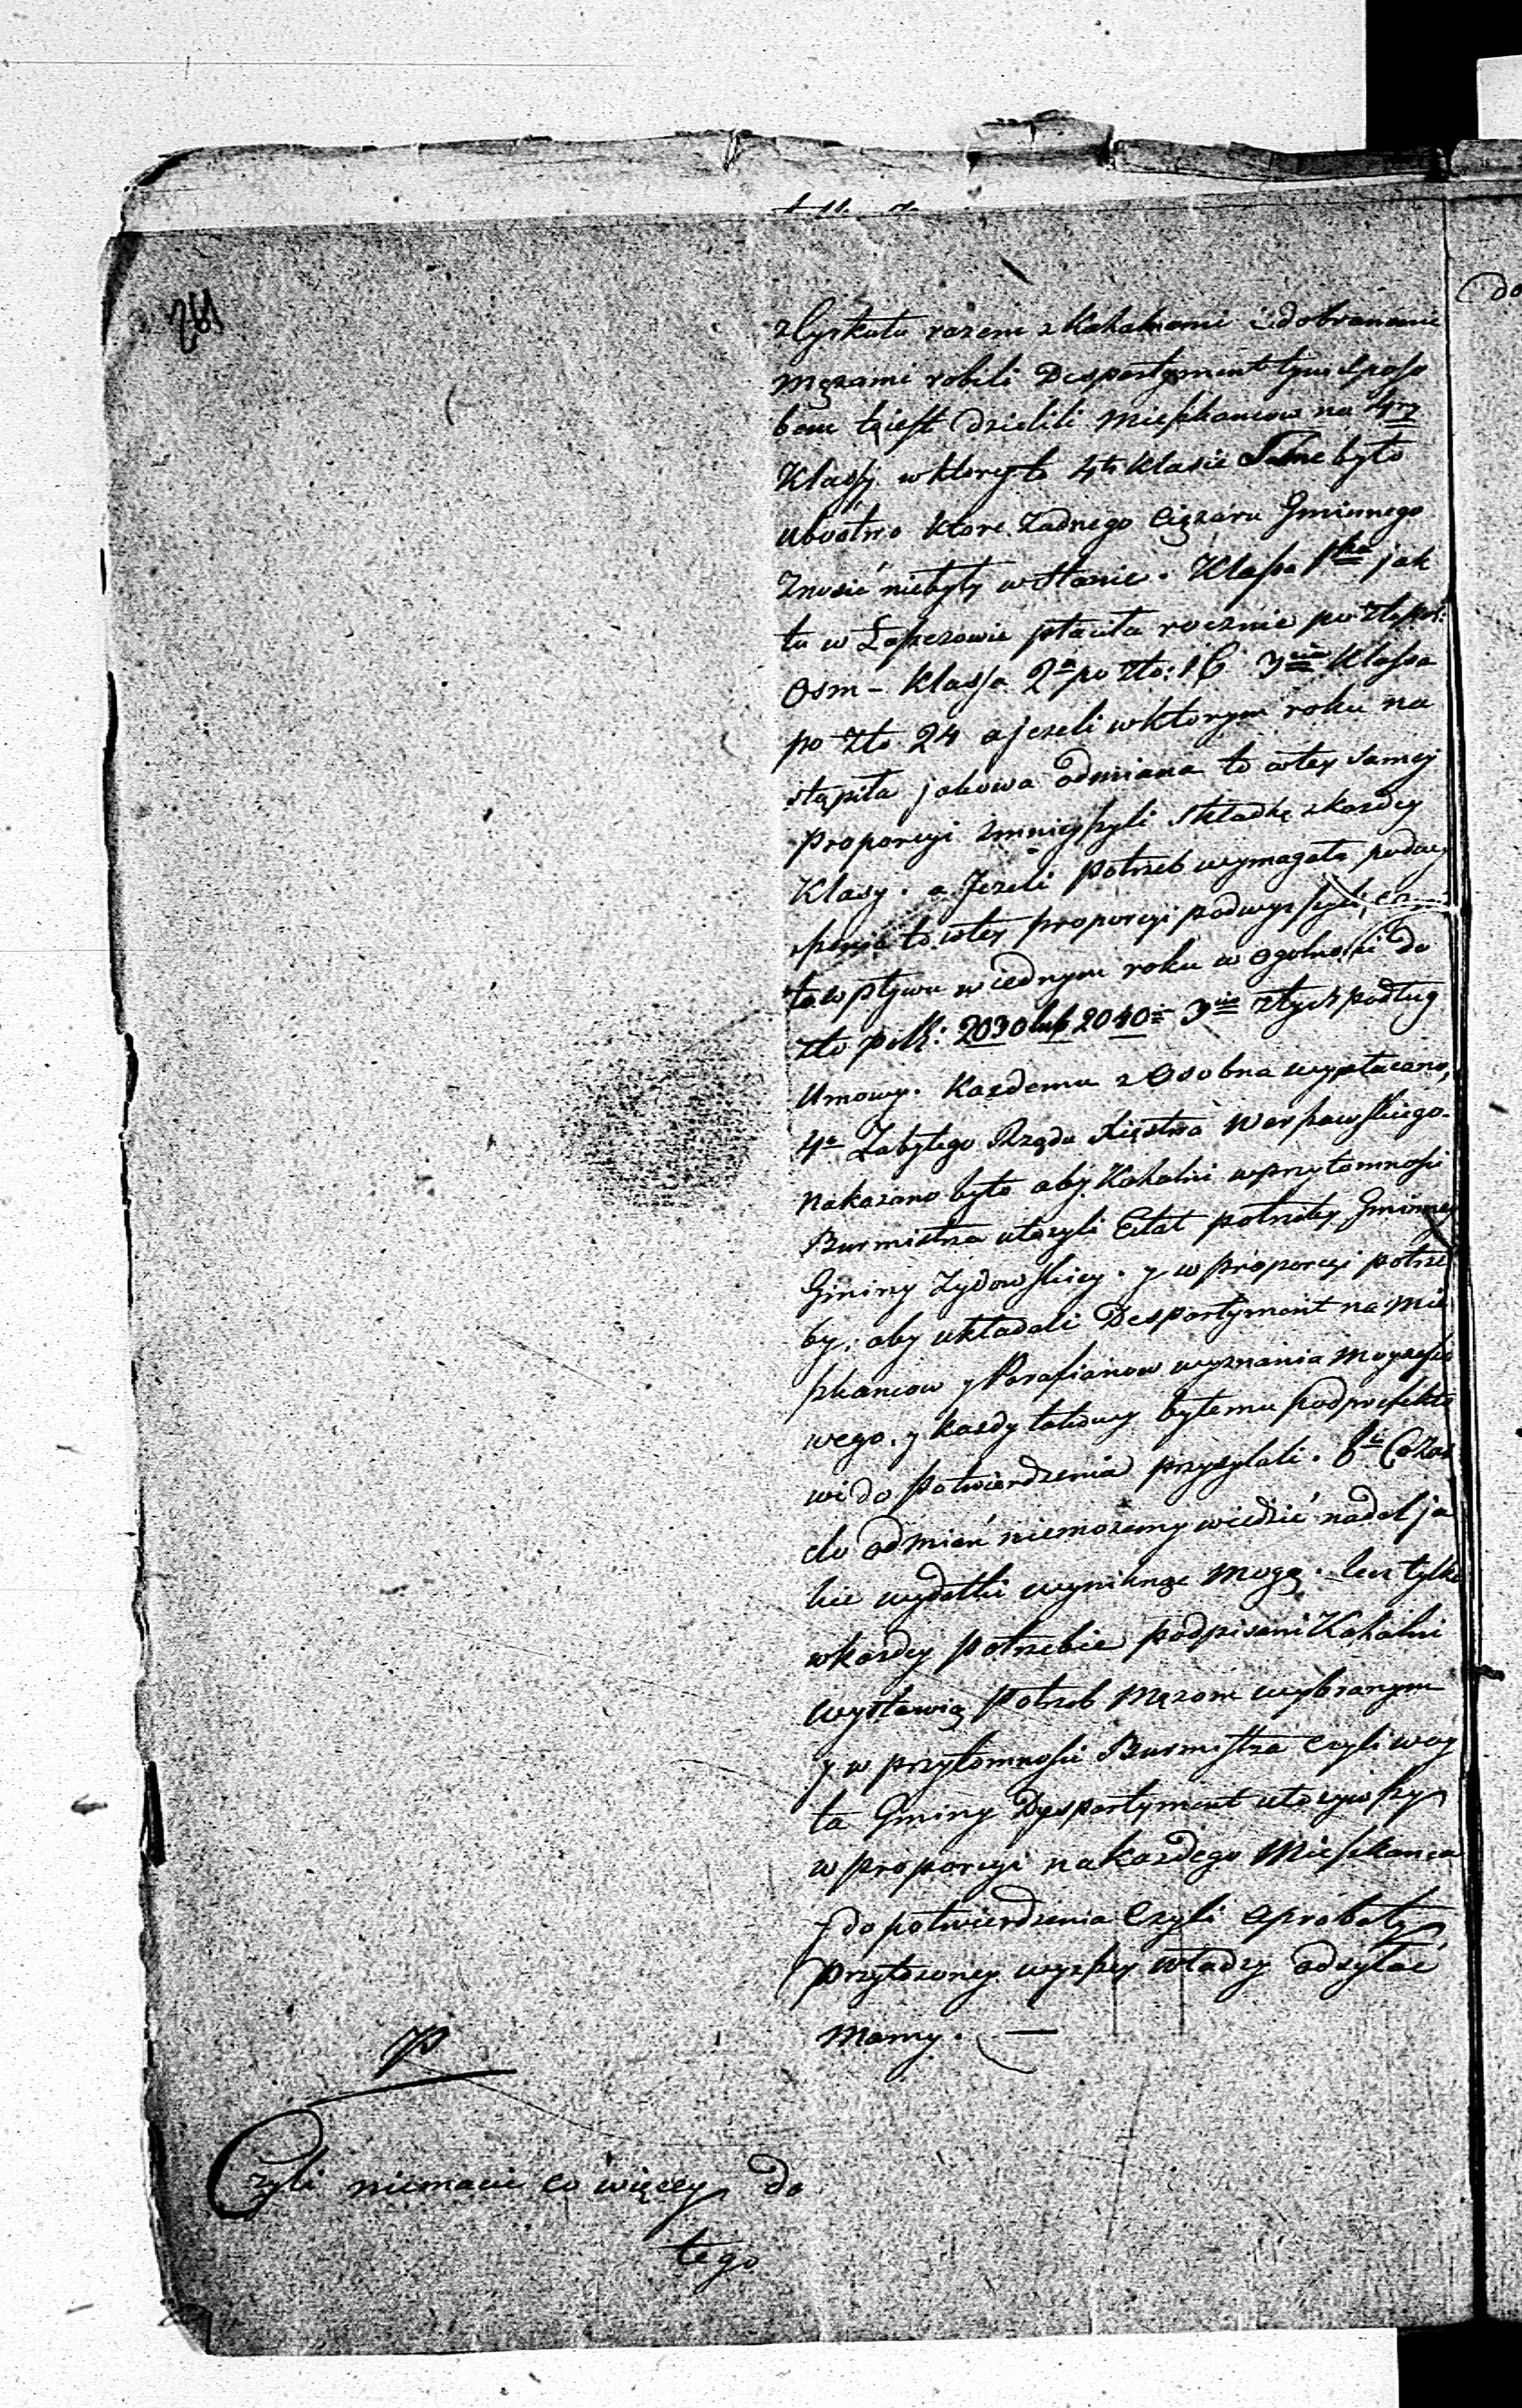 z Cyrkułu razem z Kahalnemi i dobranemi
mężami robili Despartyment tym sposo
bem to iest dzielili mieszkancow na 4ry
Klassy w ktorey to 4ty klasie same było
ubóstwo ktore żadnego Ciężaru Gminnego
znosić niebyły wstanie. Klassa 1sza jak
tu w Łapszowie płaciła rocznie po Złt pol:
Osm – Klassa 2a po zło: 16 3cia Klassa
po zło 24 a jezeli w ktorym roku na
stąpiła jakowa odmiana to w tey samey
proporcyi zmnieyszyli składkę z kazdey
Klasy. a Jezeli potrzeb wymagała podwy
szenia to w tey proporcyi podwyzszyli, czyni
to wpływu w iednym roku w ogolnosci do
zło polt: 2030 lub 2040 = 3cie złych podług
Umowy. Kazdemu z Osobna wypłacano,
4e Zabyłego Rządu Xięstwa Warszawskiego
Nakazano było aby Kahalni w przytomnosci
Burmistrza ułozyli Etat potrzeby Gminney
Gminy Zydowskiey. y w proporcyi potrze
by. aby układali Despartyment na mie
szkancow y Parafianow wyznania Moyzeszo
wego. y kazdy takowy byłemu podprefekto
wi do potwierdzenia przysyłali.
do odmian niemozemy wiedzić nadal ja
kie wydatki wyniknąc mogą. lecz tylko
w kazdey potrzebie podpisani Kahalni
wystawią potrzeb Męzom wybranym
y w przytomnosci Burmistrza czyli woy
ta Gminy Dyspartyment ułozywszy
w proporcyi na kazdego Mieszkanca
y do potwierdzenia Czyli aprobaty
przyłozoney wyzszey władzy odsyłać
Mamy. —
Czyli niemacie co więcey do
tego